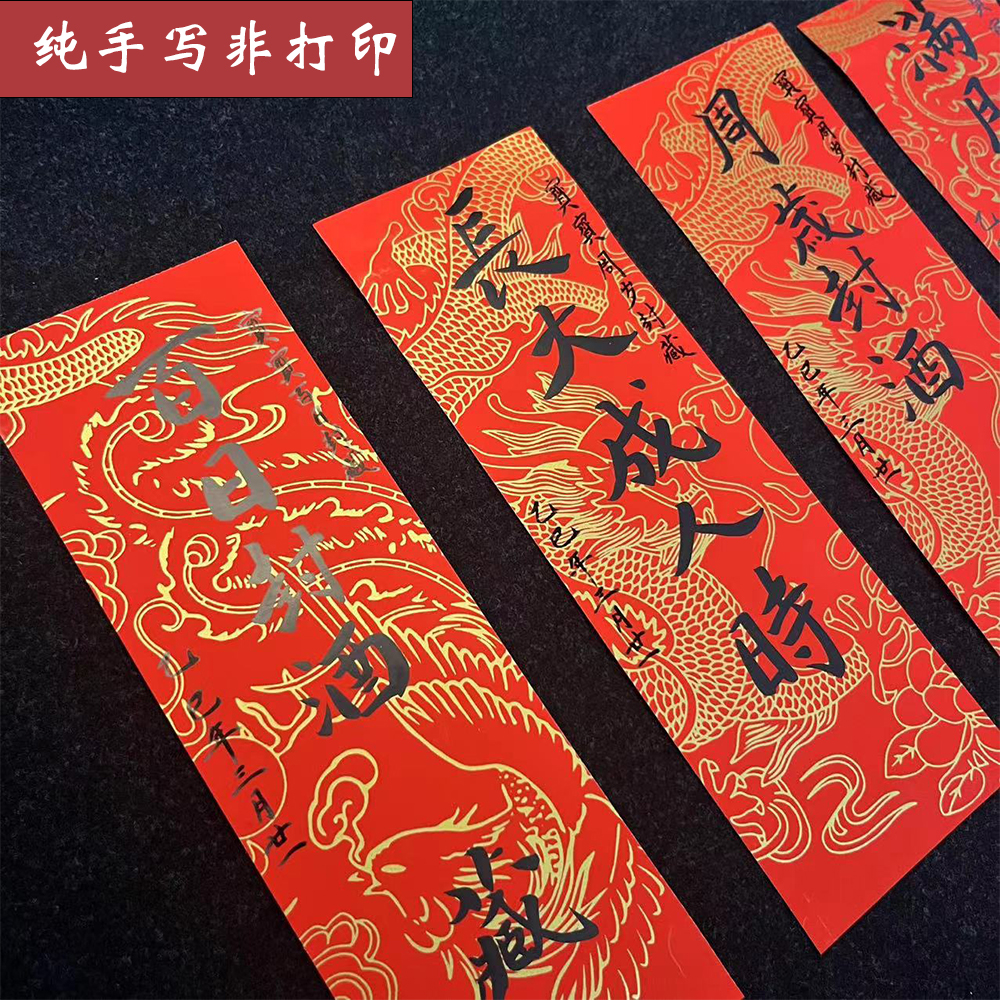 纯手写非打印
寶寶百
百日封酒藏
乙巳年三月廿一
寶寶周岁封藏
長大成人時
乙巳年三月廿一
寶寶周岁封藏
周歲封酒
乙巳年三月廿一
滿月